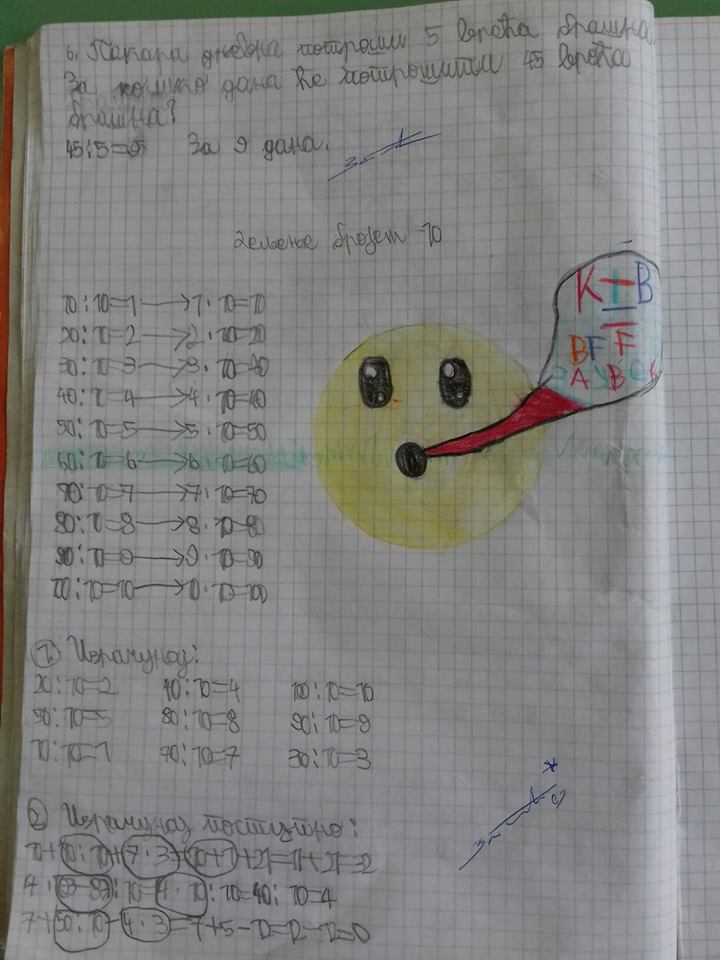 6. Пекара дневно потроши 5 врећа брашна.
За колико дана ће потрошити 45 врећа
брашна?
45:5=9 За 9 дана.
Дељење бројем 10
10:10=1→1·10=10
20:10=2→2·10=20
30:10=3→3·10=30
40:10=4→4·10=40
50:10=5→5·10=50
60:10=6→6·10=60
70:10=7→7·10=70
80:10=8→8·10=80
90:10=9→9·10=90
100:10=10→10·10=100
K + B
BF F
A B
1. Израчунај:
20:10=2 40:10=4 100:10=10
50:10=5 80:10=8 90:10=9
10:10=1 70:10=7 30:10=3
2. Израчунај поступно:
4· :10=4·10:10=40:10=4
7+50:10-4·3=7+5-12=12-12=0